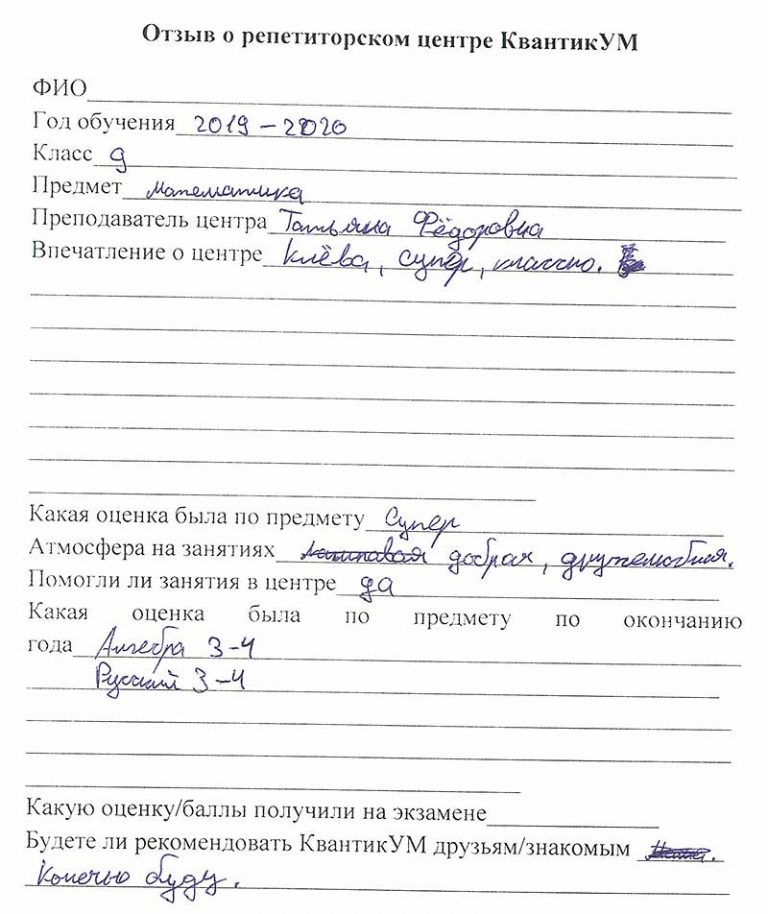 Отзыв о репетиторском центре КвантикУМ
ФИО
Год обучения 2019 – 2020
Класс 9
Предмет математика
Преподаватель центра Татьяна Фёдоровна
Впечатление о центре Клёва, супер, классно.
Какая оценка была по предмету Супер
Атмосфера на занятиях добрая, дружелюбная.
Помогли ли занятия в центре да
Какая оценка была по предмету по окончанию
года Алгебра 3-4
Русский 3-4
Какую оценку/баллы получили на экзамене
Будете ли рекомендовать КвантикУМ друзьям/знакомым
Конечно буду.